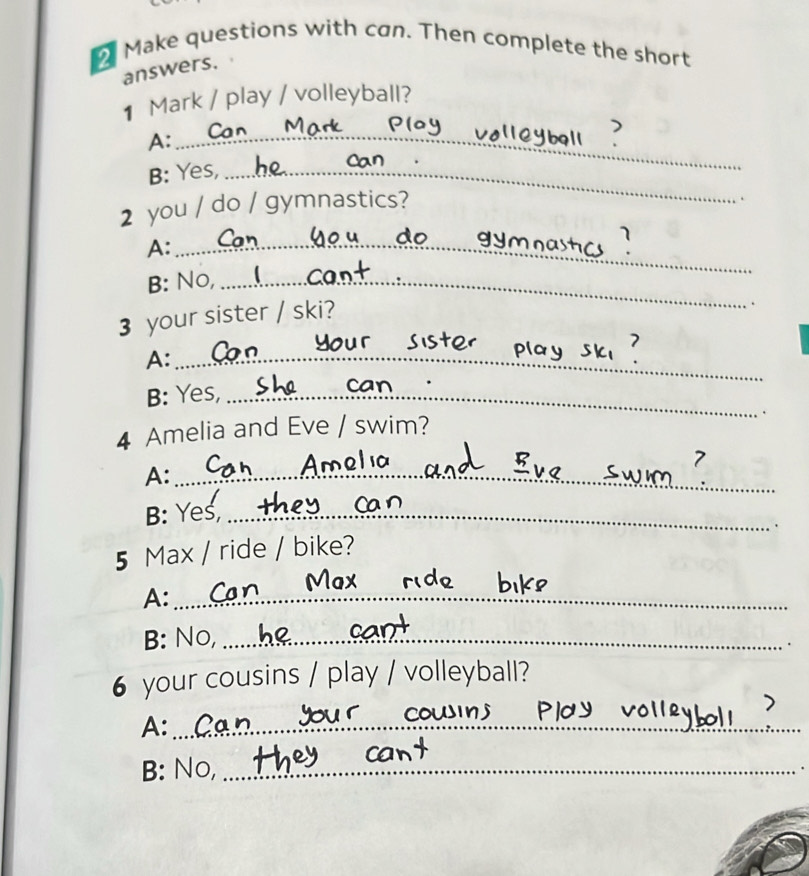 2 Make questions with can. Then complete the short
answers.
1 Mark / play / volleyball?
A: Can Mark Play volleyball ?
B: Yes, he can .
2 you / do / gymnastics?
A: Can you do gymnastics ?
B: No, I cant .
3 your sister / ski?
A: Can your sister play ski ?
B: Yes, she can .
4 Amelia and Eve / swim?
A: Can Amelia and Eve swim ?
B: Yes, they can .
5 Max / ride / bike?
A: Can Max ride bike
B: No, he cant .
6 your cousins / play / volleyball?
A: Can your cousins Play volleyboll ?
B: No, they cant .